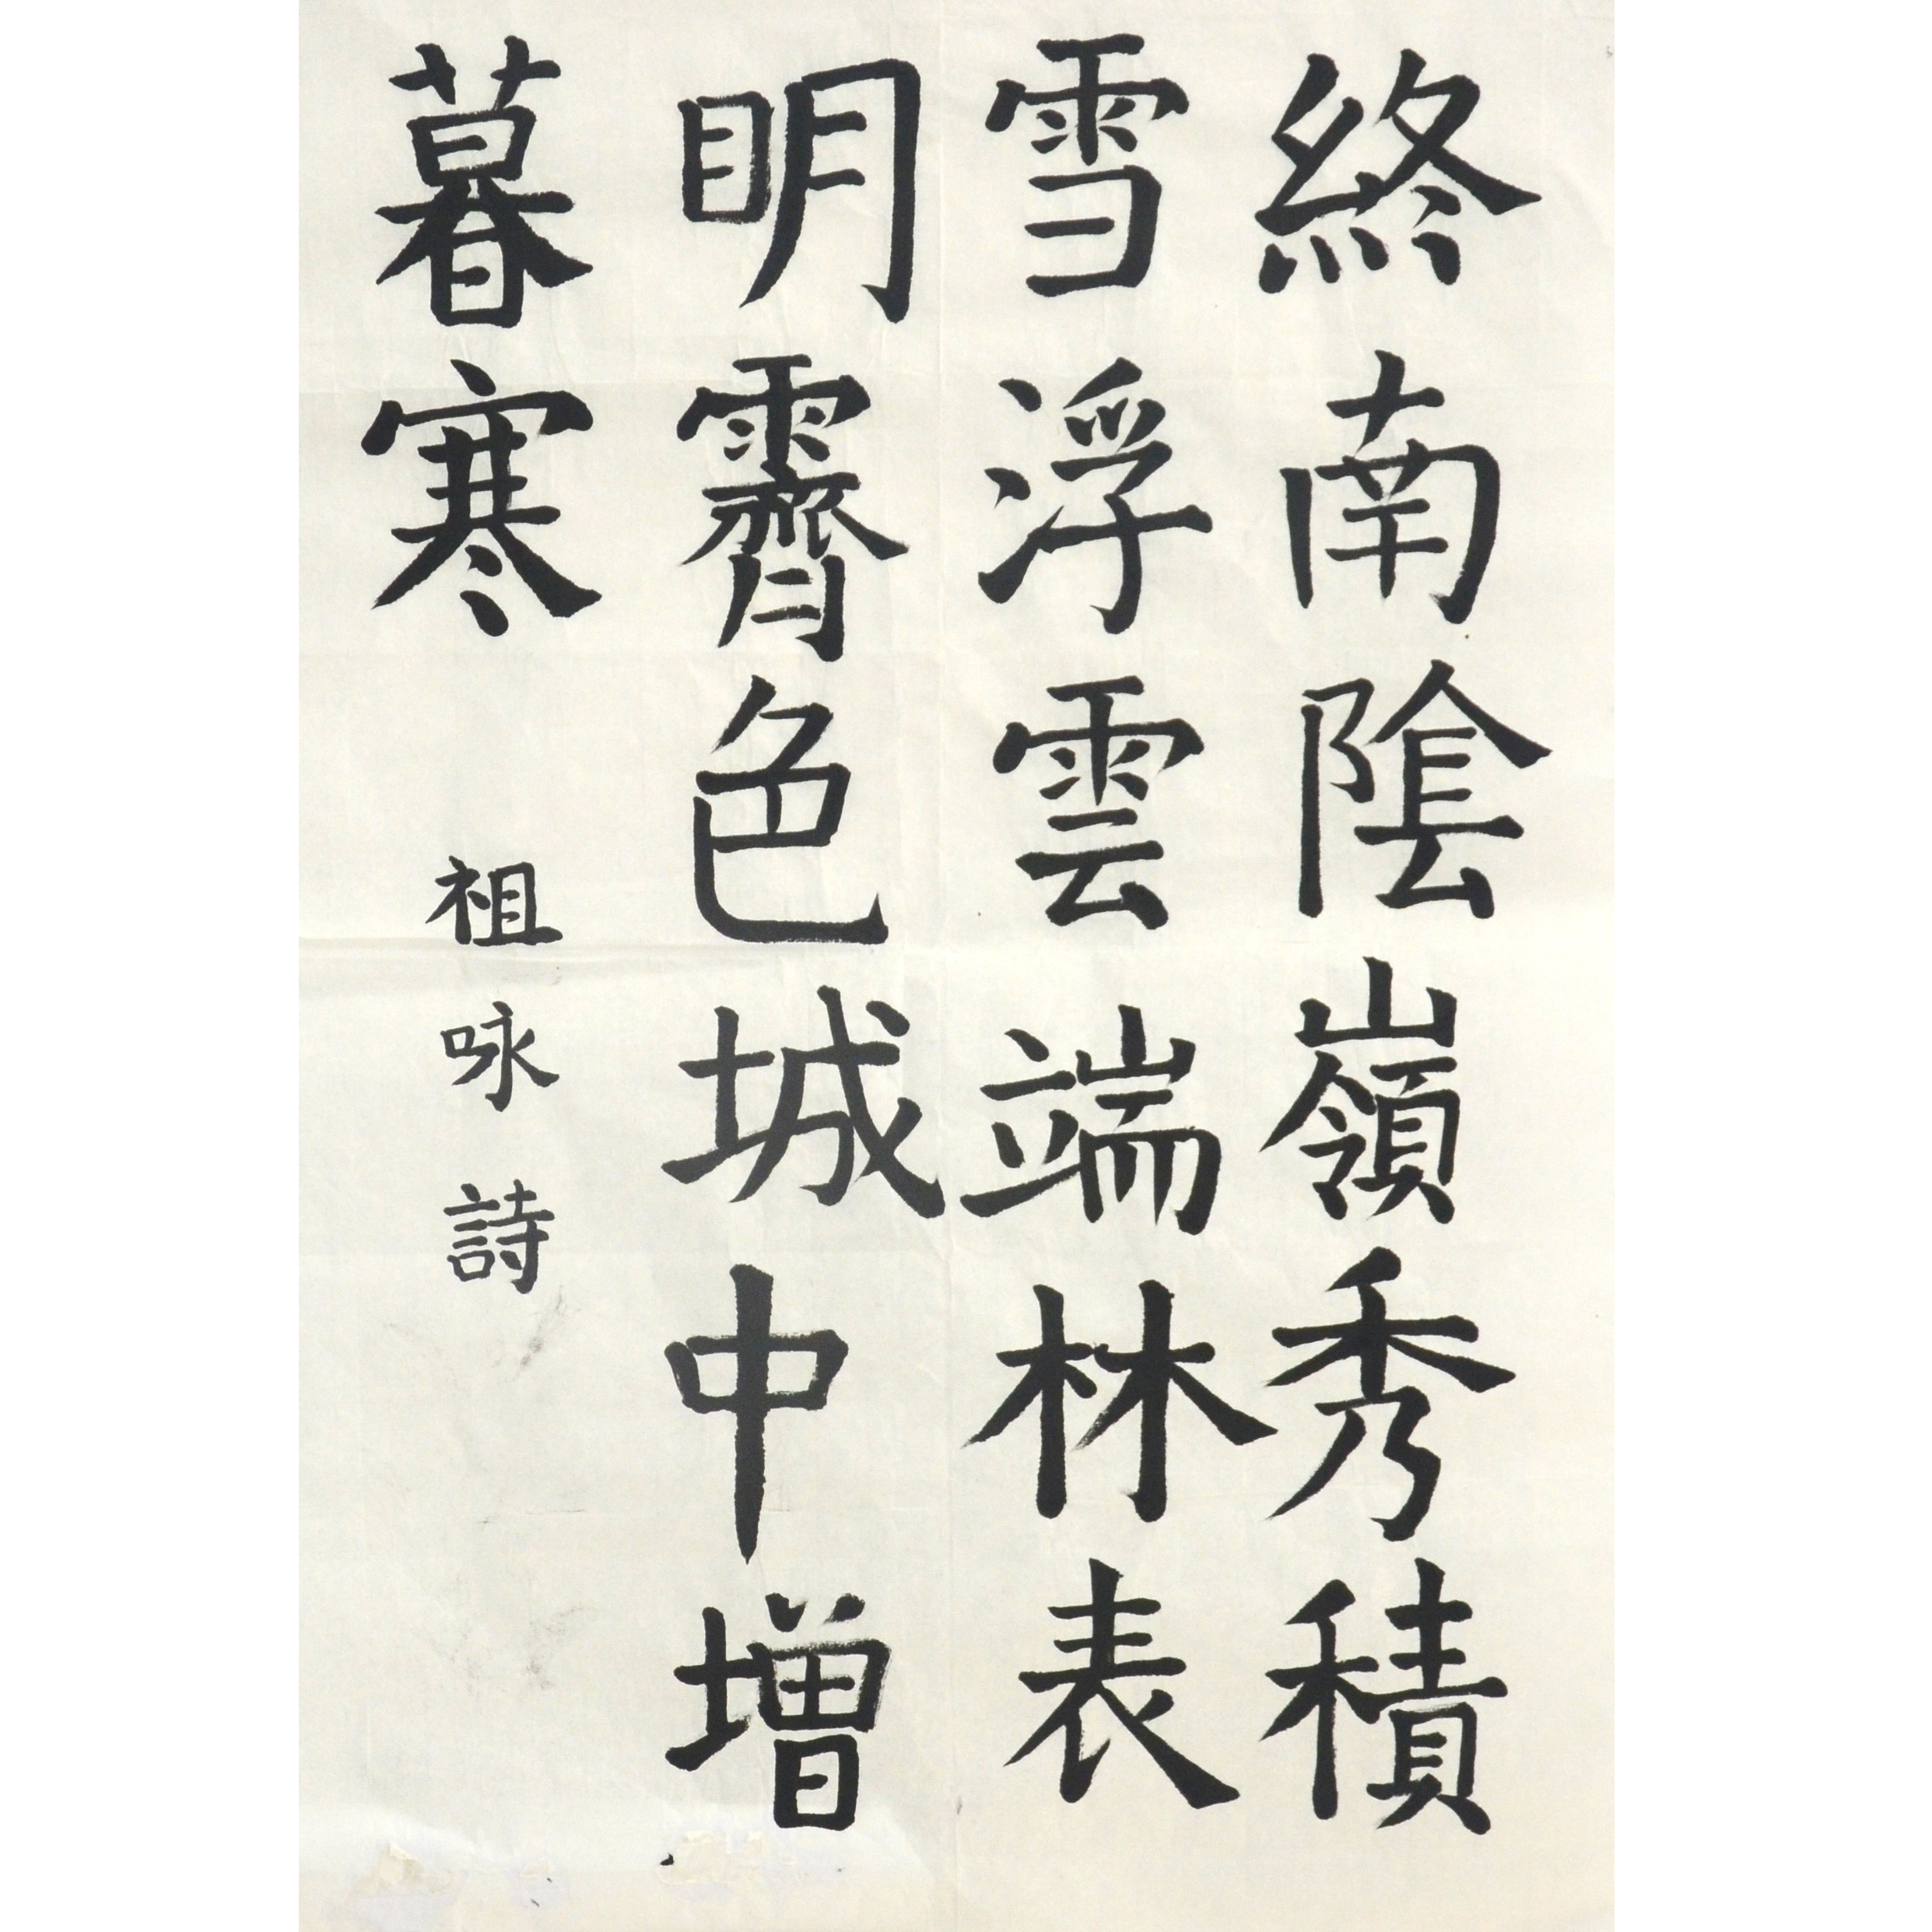 終南陰嶺秀積
雪浮雲端林表
明霽色城中增
暮寒
祖咏詩